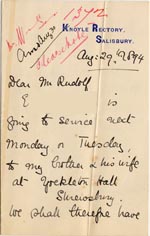 KNOYLE RECTORY,
SALISBURY.
Aug: 29, 1894
Dear Mr Rudolf
E is
going to service next
Monday or Tuesday,
to my brother & his wife
at Yockleton Hall
Shrewsbury.
We shall therefore have